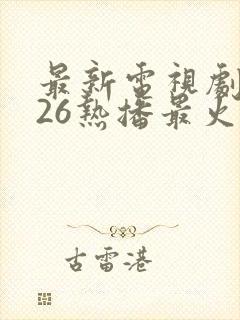 最新電視劇
26熱播最火
古雷港